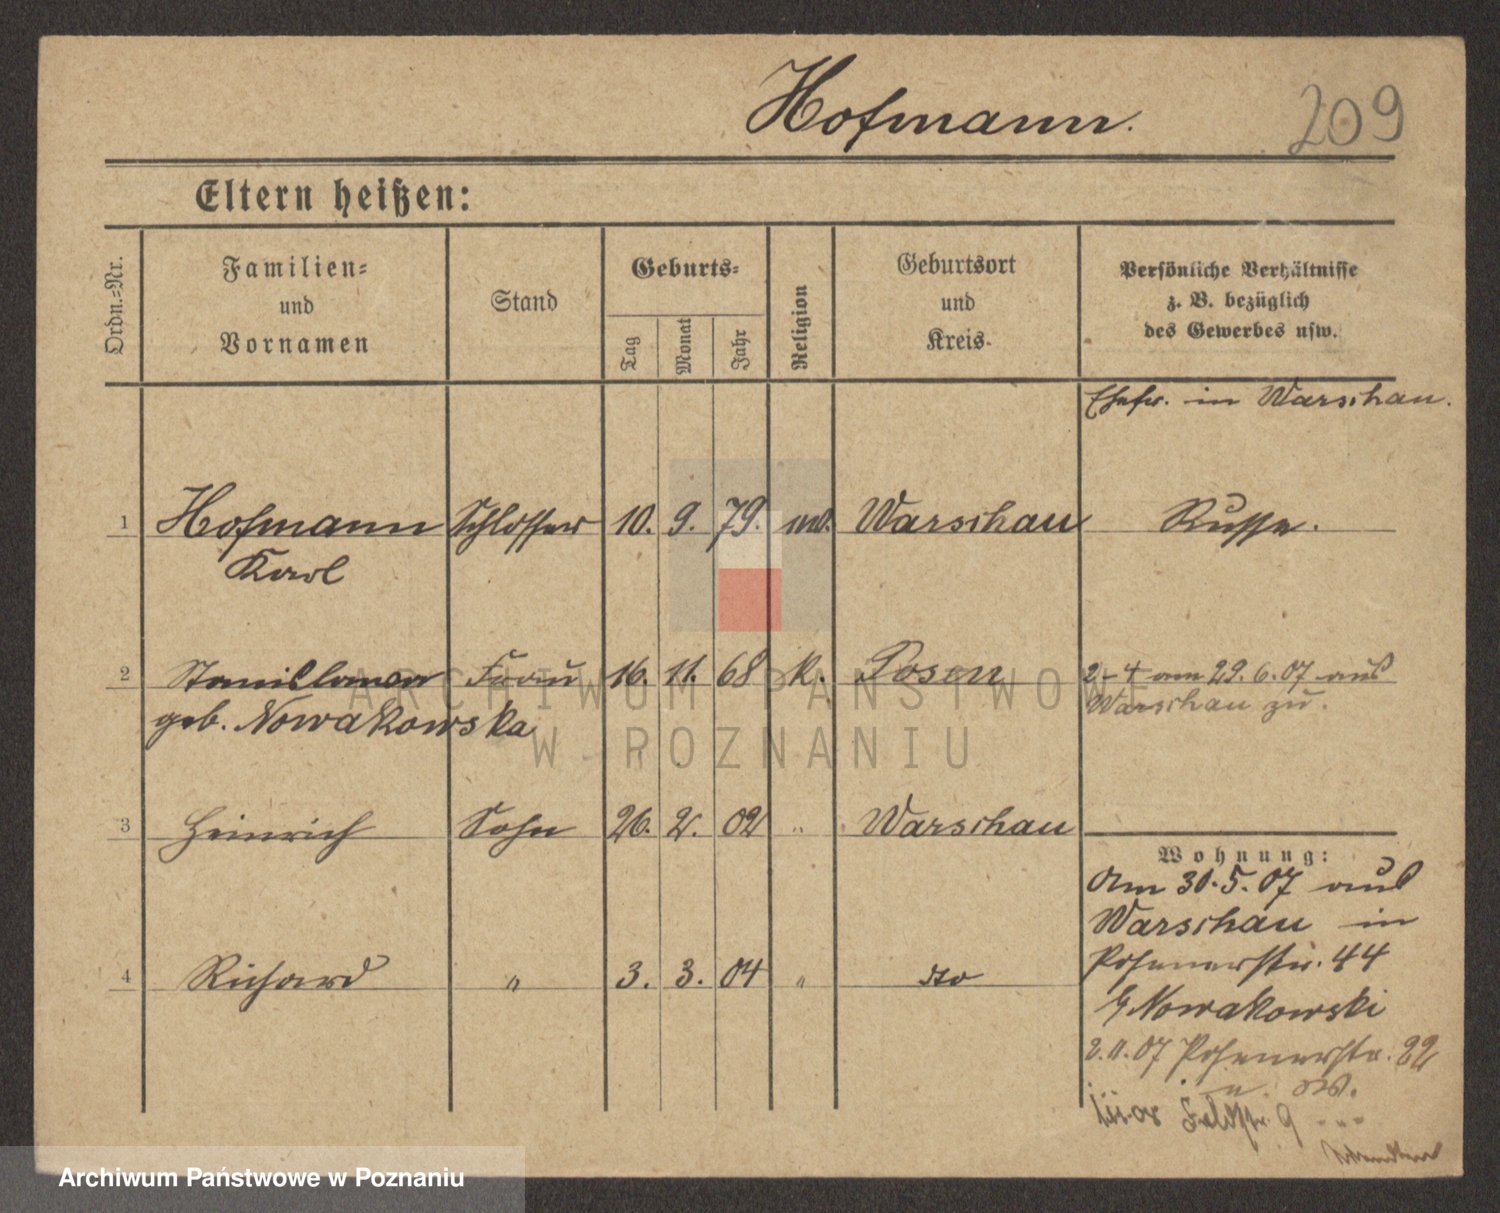 Hofmann.
209
Eltern heißen:
Ordn.=Nr.
Familien=
und
Vornamen
Stand
Geburts=
Tag
Monat
Jahr
Religion
Geburtsort
und
Kreis.
Persönliche Verhältnisse
z. B. bezüglich
des Gewerbes usw.
Ehefr. in Warschau.
1 Hofmann Schlosser 10. 9. 79. Warschau Russe.
Karl
2 Stanislawa Frau 16. 11. 68 k. Posen 2-4 am 29. 6. 07 aus
geb. Nowakowska Warschau zu.
3 Heinrich Sohn 26. 2. 02 " Warschau
4 Richard " 3. 3. 04 " dto
Wohnung:
Am 30. 5. 07 aus
Warschau in
Posenerstr. 44
Nowakowski
2. 11. 07 Posenerstr. 22
Feldstr. 9
ARCHIWUM PAŃSTWOWE
W POZNANIU
Archiwum Państwowe w Poznaniu